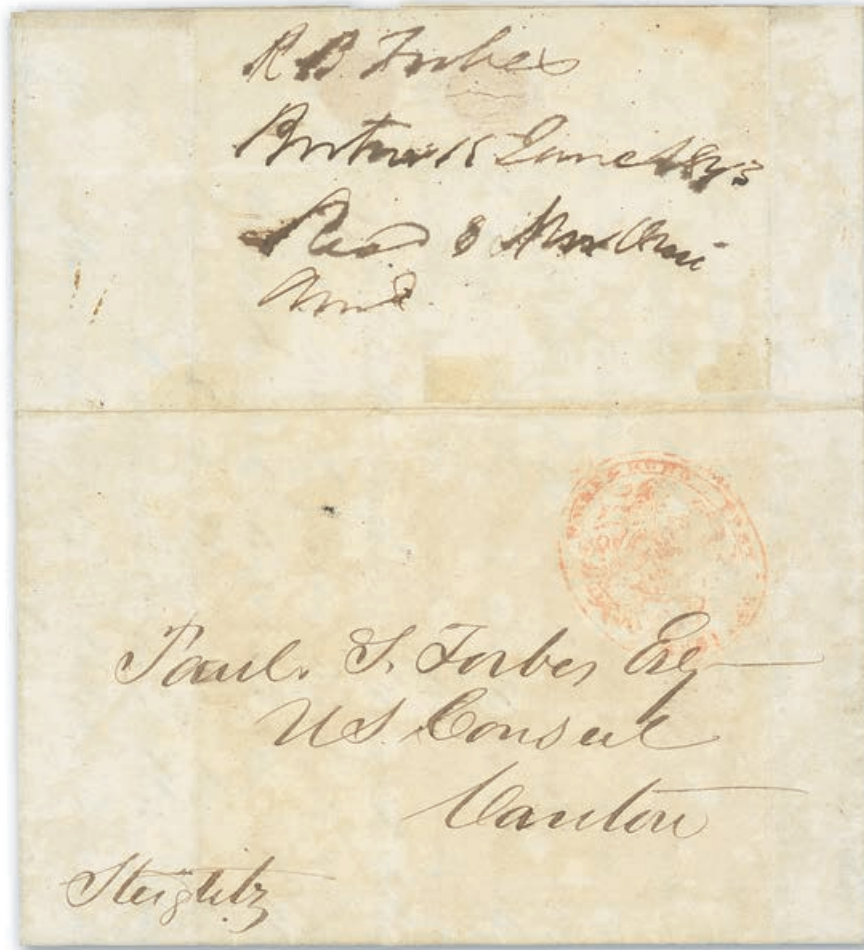 R B Forbes
Boston 15 June 1843
Recd 8 Nov
Ansd.
Paul. S. Forbes Esq
U S. Consul
Canton
Steiglitz